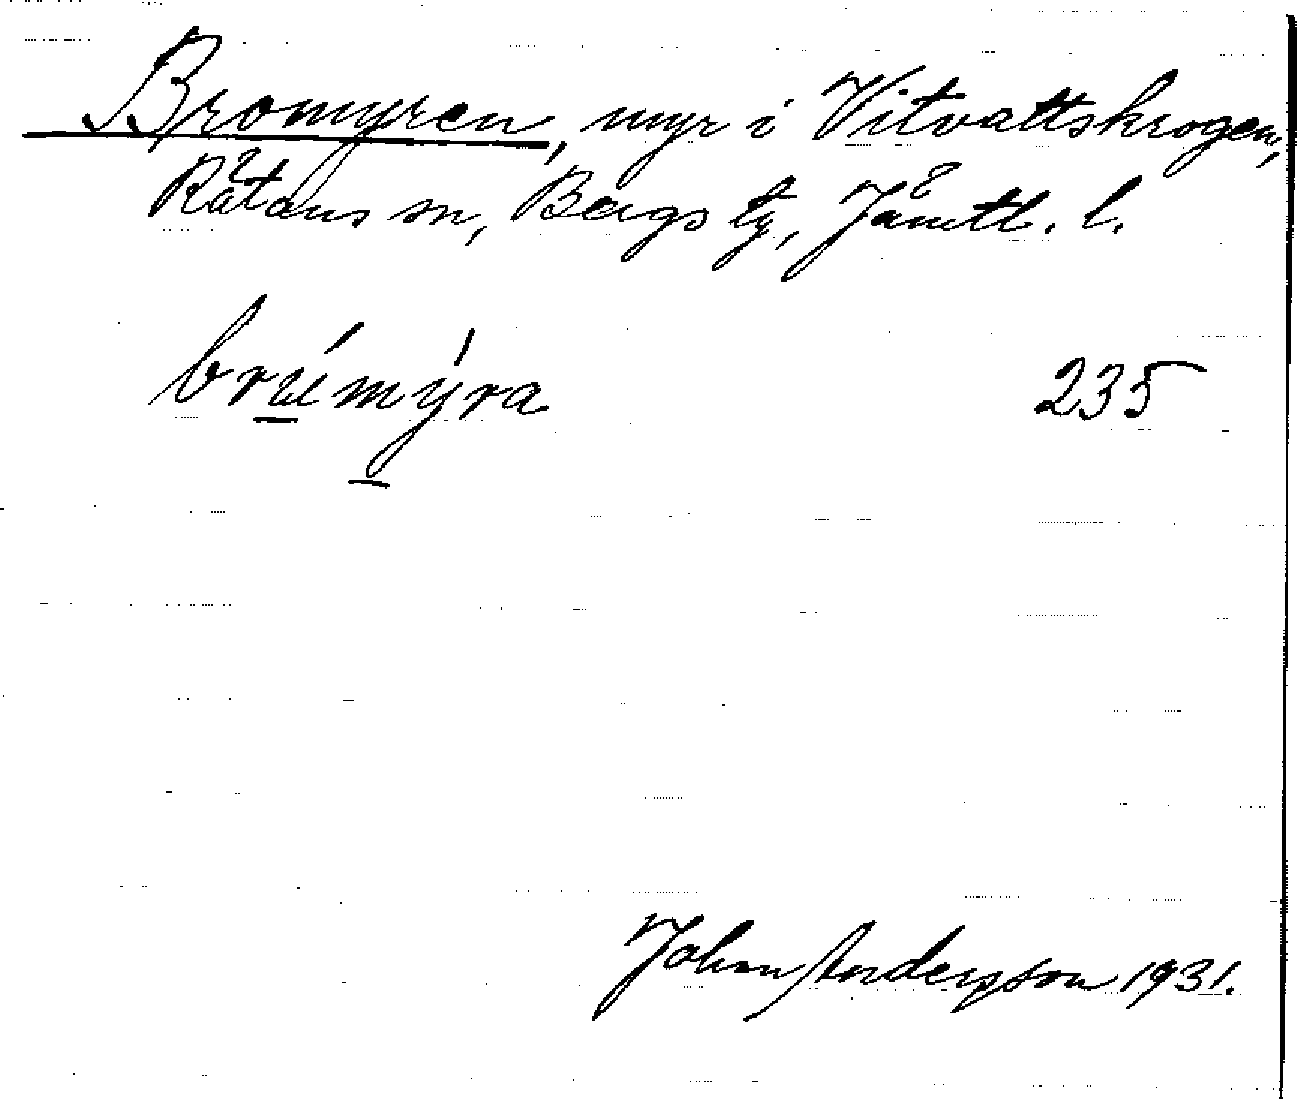 Bromyren, myr i Vitvattskrogen,
Rätans sn, Bergs tg, Jämtl. l.
brúmýra 235
John Andersson 1931.